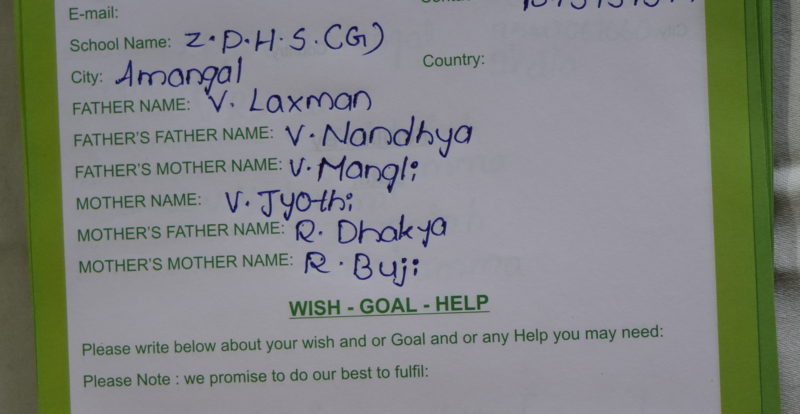 E-mail:
School Name: Z.P.H.S.(G)
City: Amangal Country:
FATHER NAME: V. Laxman
FATHER'S FATHER NAME: V. Nandhya
FATHER'S MOTHER NAME: V. Mangli
MOTHER NAME: V. Jyothi
MOTHER'S FATHER NAME: R. Dhakya
MOTHER'S MOTHER NAME: R. Buji
WISH - GOAL - HELP
Please write below about your wish and or Goal and or any Help you may need:
Please Note : we promise to do our best to fulfil: